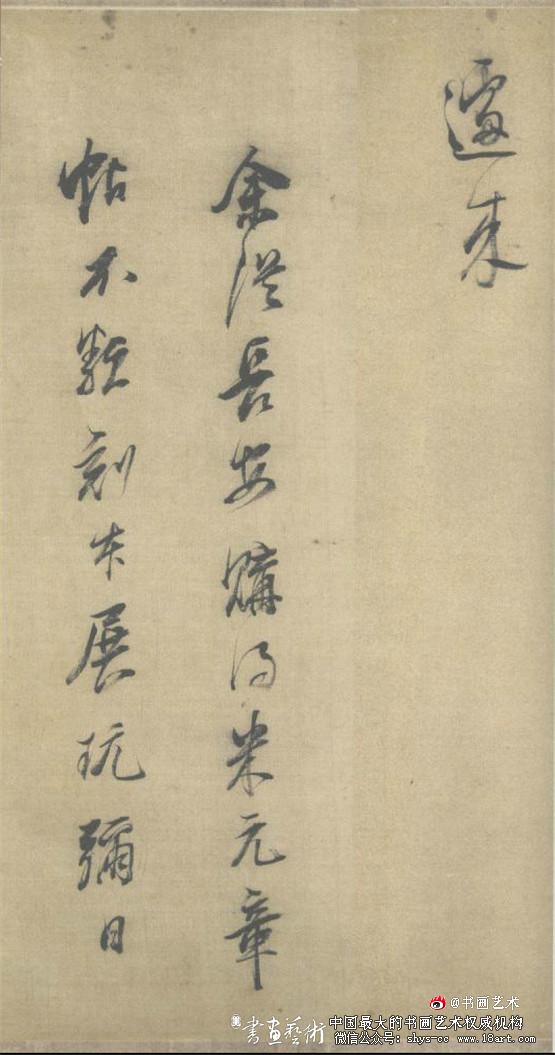 来
余從長安購得米元章
帖不類刻本展玩彌日
@书画艺术
書画藝術
中国最大的书画艺术权威机构
微信公众号: shys-cc www.18art.com